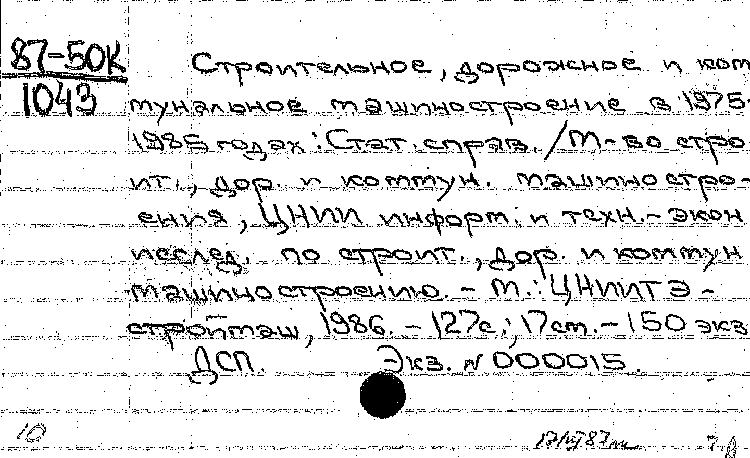 87-50К
1043
Строительное, дорожное и ком
мунальное машиностроение в 1975-
1985 годах: Стат. справ. / М-во стро
ит., дор. и коммун. машиностро-
ения, ЦНИИ информ. и техн.-экон
исслед. по строит., дор. и коммун
машиностроению. - М.: ЦНИИТЭ-
строймаш, 1986. - 127с.; 17см. - 150 экз
ДСП. Экз. N 000015.
10